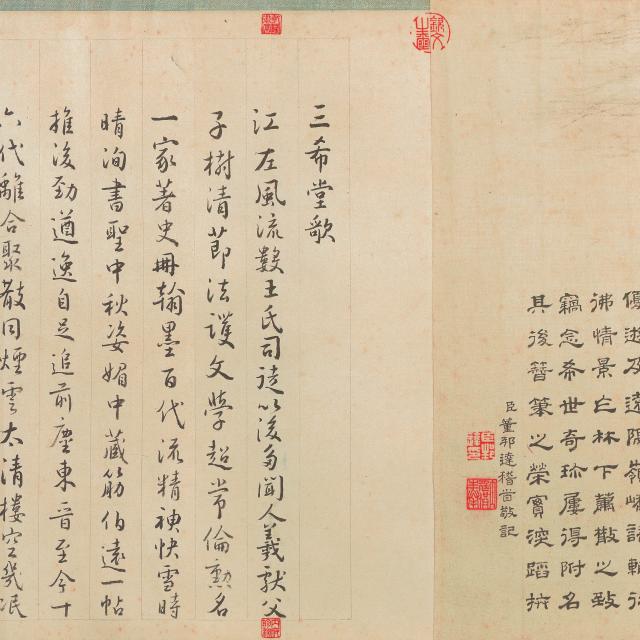 及遠
彿情景林下蕭散之致
竊念希世奇珎屢得附名
其後簪筆之榮實深蹈抃
臣董邦達稽首敬記
三希堂歌
江左風流數王氏司徒以後多聞人羲獻父
子樹清節法護文學超常倫勲名
一家著史冊翰墨百代流精神快雪時
晴洵書聖中秋姿媚中藏筋伯遠一帖
推後勁遒逸自足追前塵東晉至今十
六代離合聚散同煙雲太清樓空幾泯